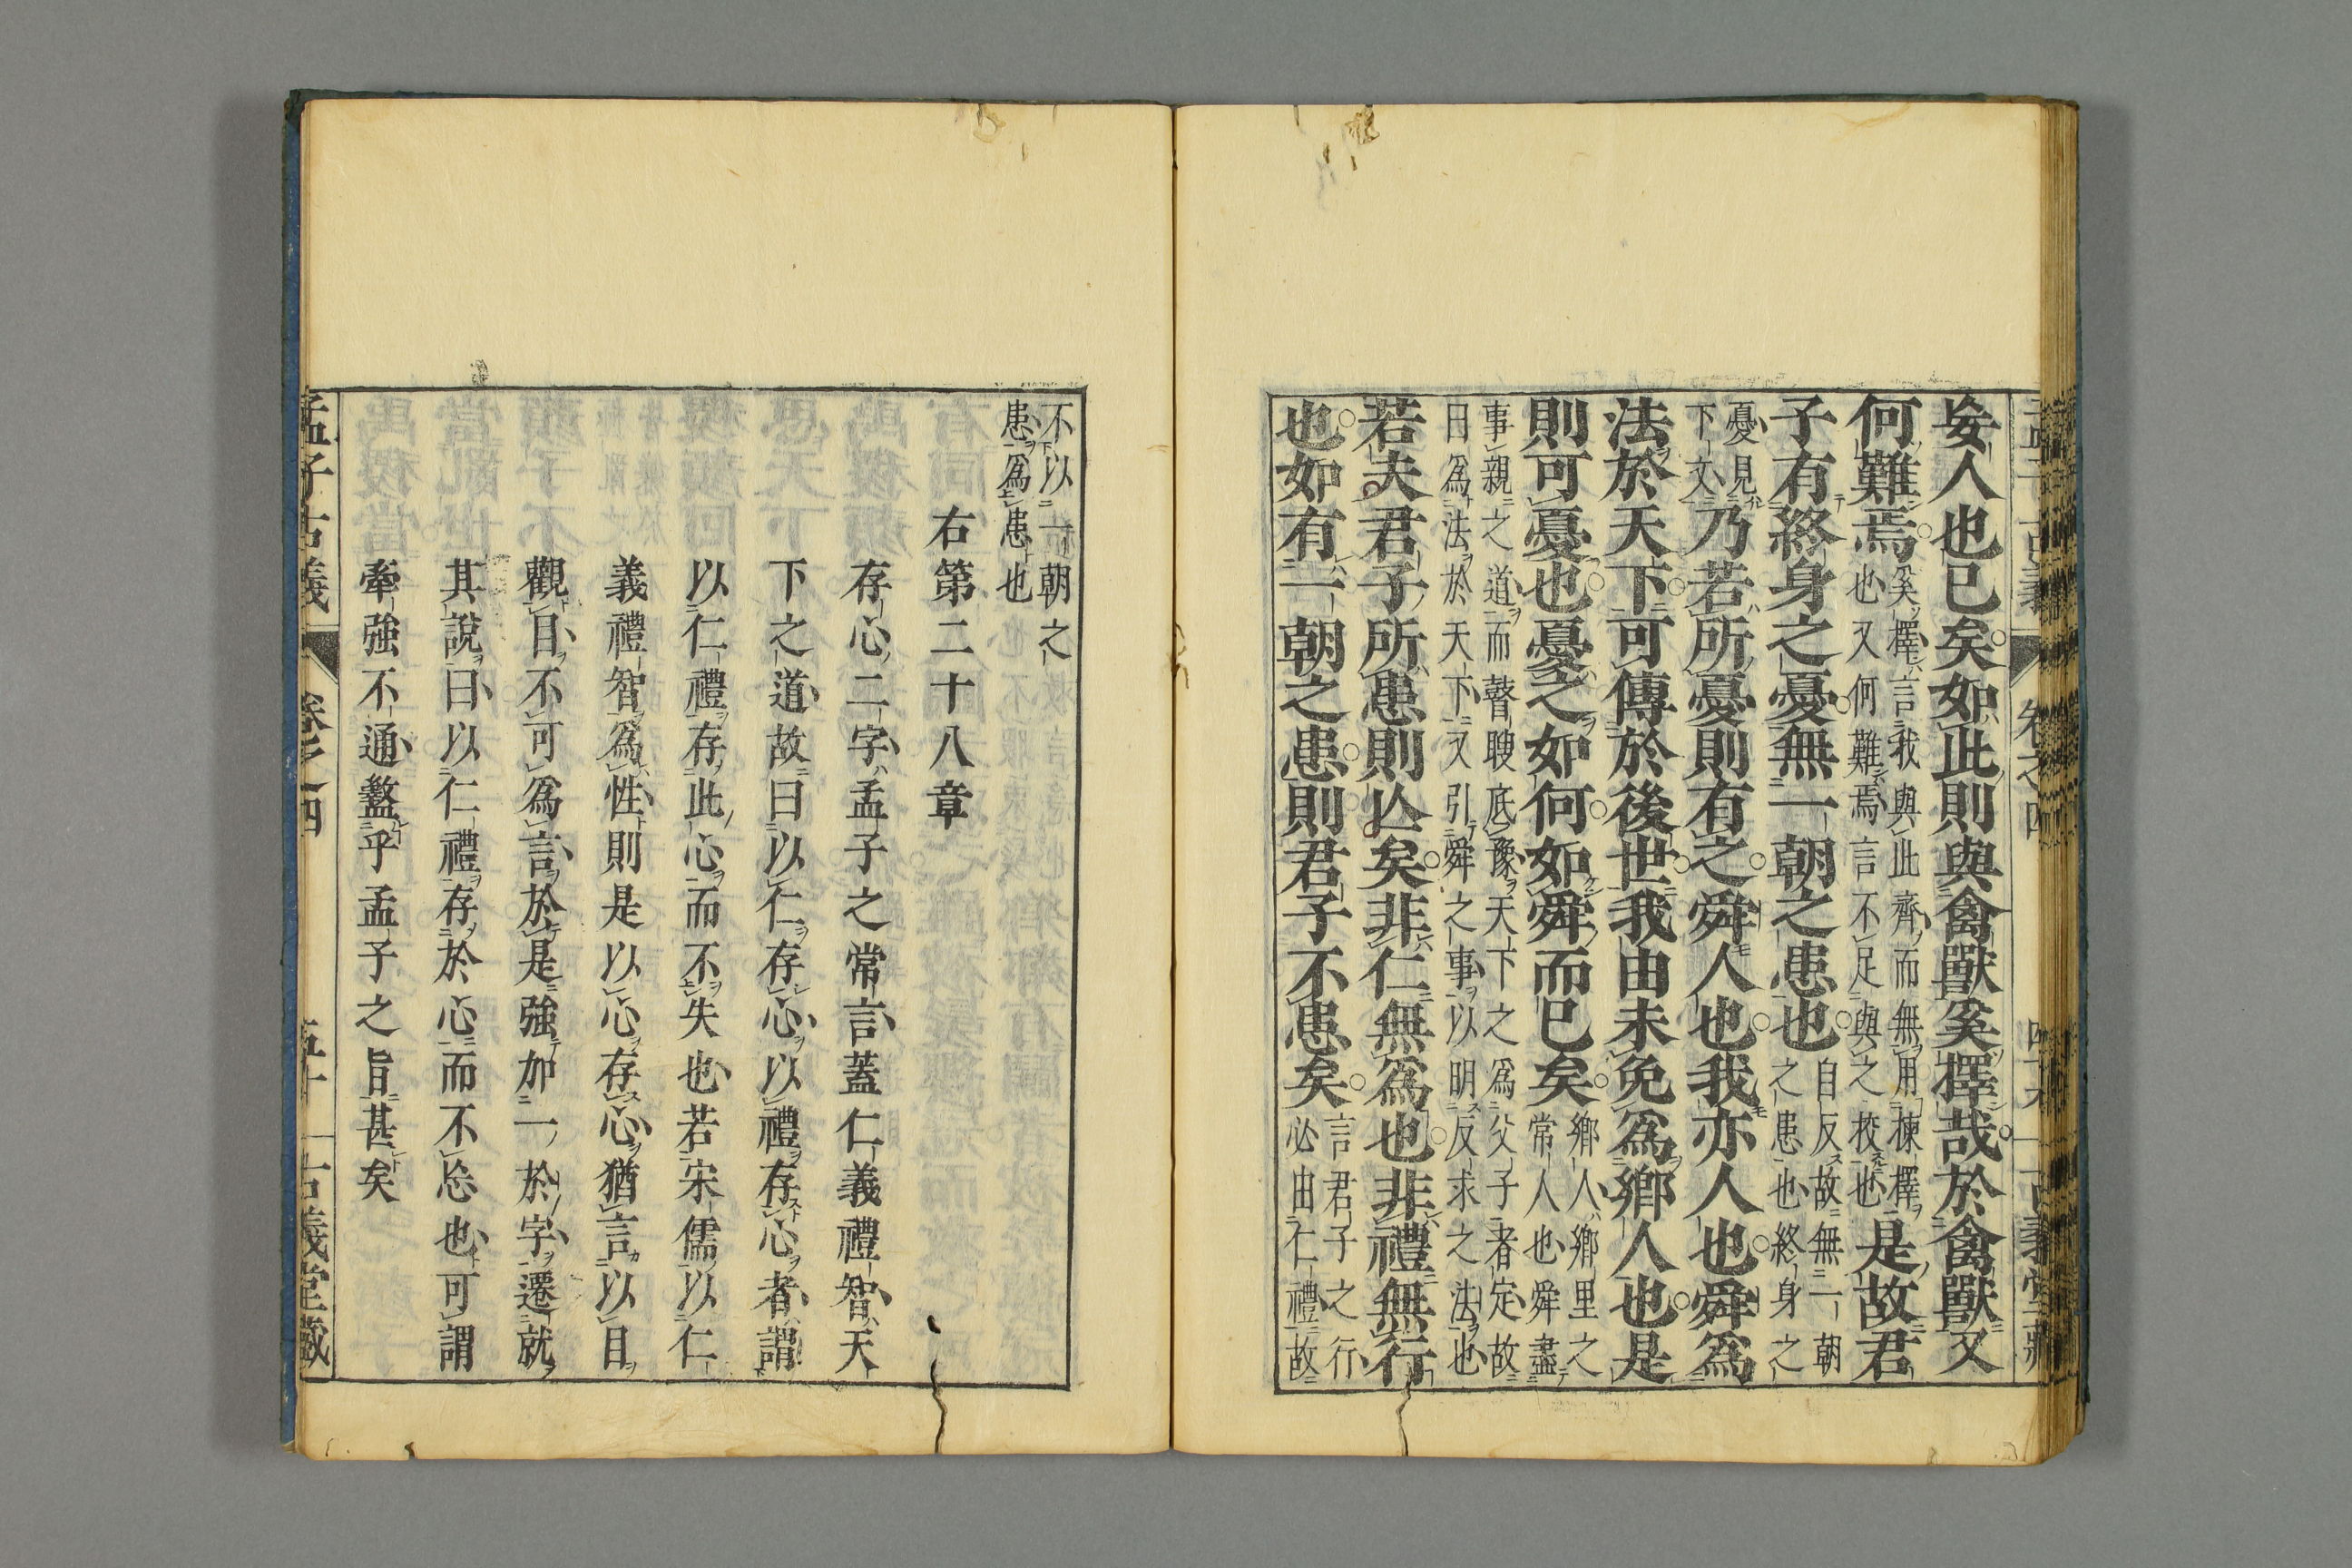 妄人也已矣如此則與禽獸奚擇哉於禽獸又
何難焉奚擇言我與此齊而無用揀擇
也又何難焉言不足與之校也是故君
子有終身之憂無一朝之患也自反故無一朝
之患也終身之
憂見
下文乃若所憂則有之舜人也我亦人也舜爲
法於天下可傳於後世我由未免爲鄉人也是
則可憂也憂之如何如舜而已矣鄉人鄉里之
常人也舜盡
事親之道而瞽瞍底豫天下之爲父子者定故
曰爲法於天下又引舜之事以明反求之法也
若夫君子所患則亾矣非仁無爲也非禮無行
也如有一朝之患則君子不患矣言君子之行
必由仁禮故
不以一朝之
患爲患也
右第二十八章
存心二字孟子之常言蓋仁義禮智天
下之道故曰以仁存心以禮存心者謂
以仁禮存此心而不失也若宋儒以仁
義禮智爲性則是以心存心猶言以目
觀目不可爲言於是強加一於字遷就
其說曰以仁禮存於心而不忘也可謂
牽強不通盭乎孟子之旨甚矣
孟子古義 卷之四 五十 古義堂藏